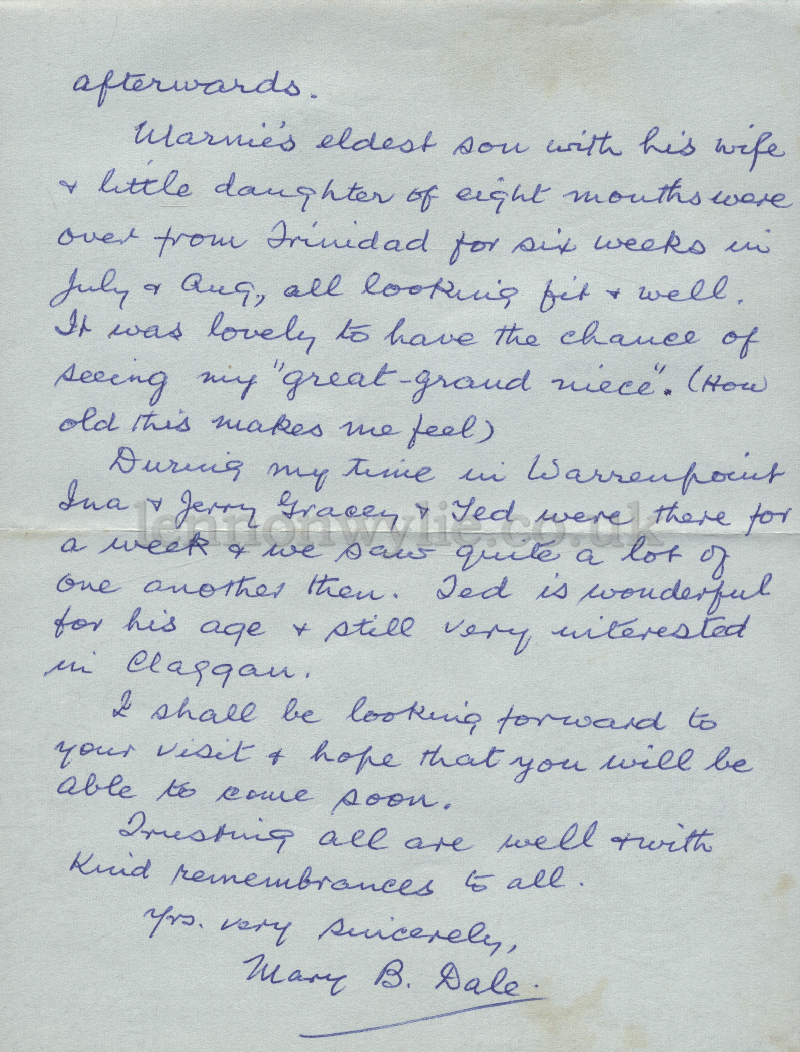 afterwards.
Marnie's eldest son with his wife
& little daughter of eight months were
over from Trinidad for six weeks in
July & Aug, all looking fit & well.
It was lovely to have the chance of
seeing my "great-grand niece". (How
old this makes me feel)
During my time in Warrenpoint
Ina & Jerry Gracey & Ted were there for
lennonwylie.co.uk
a week & we saw quite a lot of
one another then. Ted is wonderful
for his age & still very interested
in Claggan.
I shall be looking forward to
your visit & hope that you will be
able to come soon.
Trusting all are well & with
kind remembrances to all.
Yrs. very sincerely,
Mary B. Dale.